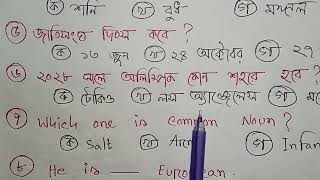 ক শনি খ বুধ গ মঙ্গল
৫ জাতিসংঘ দিবস কবে ?
ক ১৩ জুন খ ২৪ অক্টোবর গ ২৭
৬ ২০২৮ সালে অলিম্পিক কোন শহরে হবে ?
ক টোকিও খ লস অ্যাঞ্জেলেস গ
৭ Which one is Common Noun ?
ক Salt খ গ Infan
৮ He is — European.